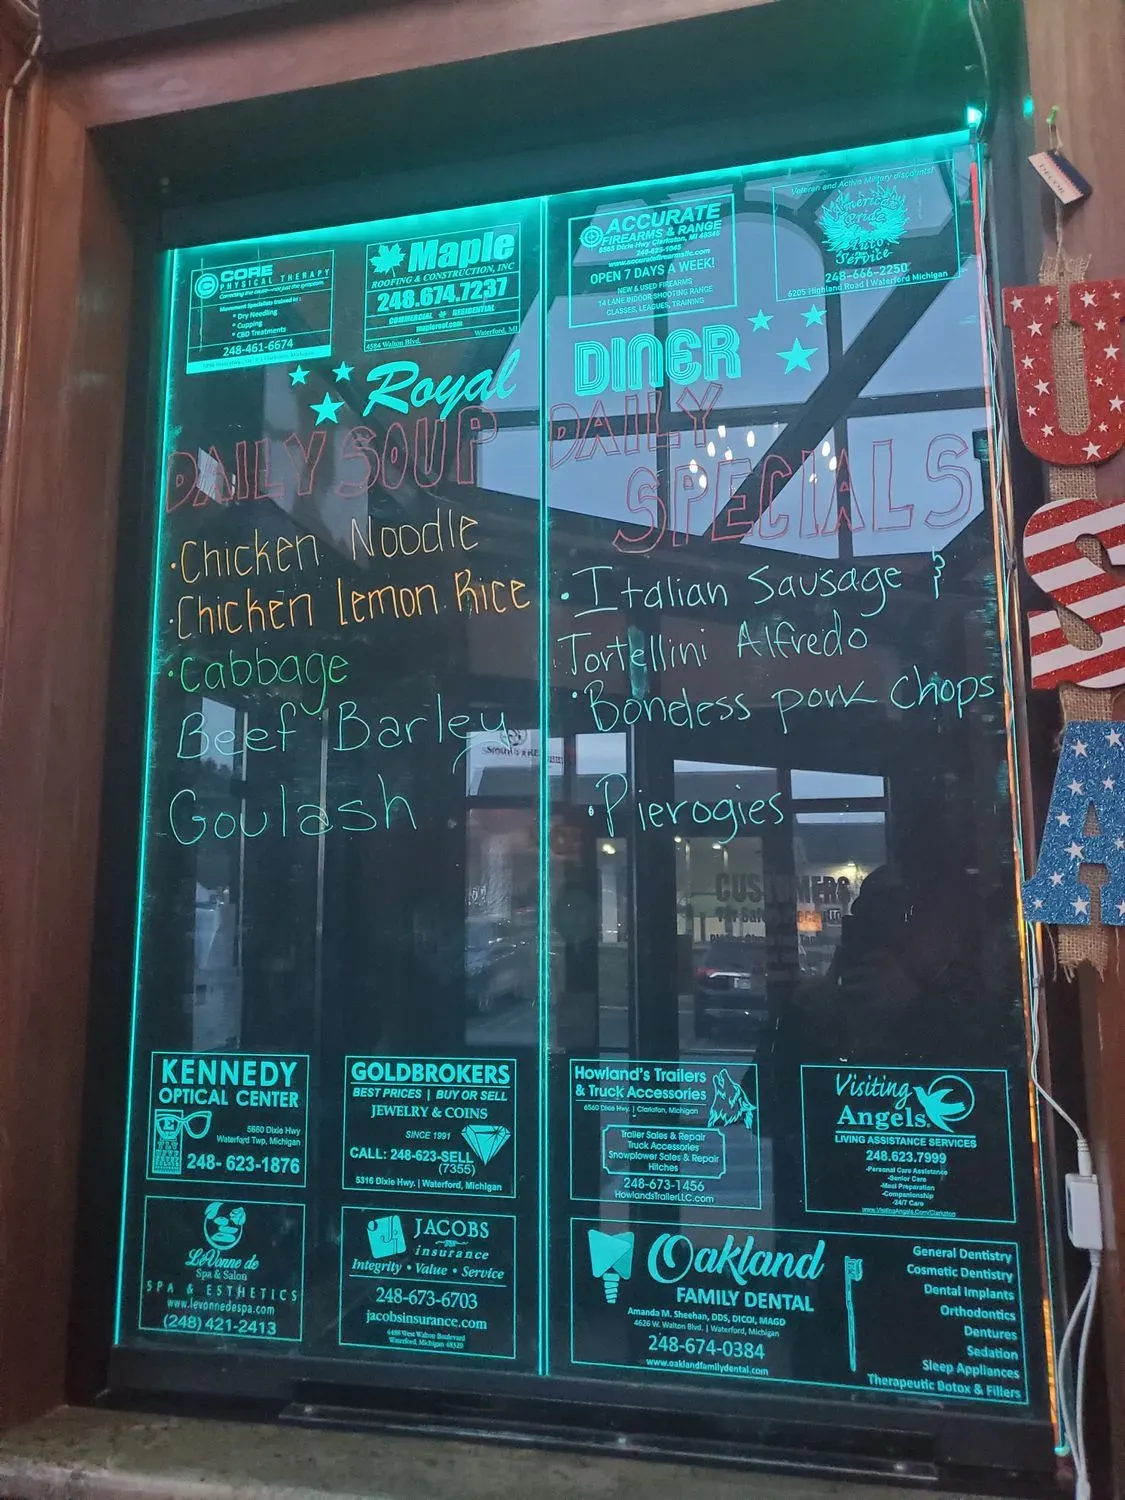 CORE
PHYSICAL THERAPY
Correcting the cause—not just the symptom.
Movement Specialists trained in :
* Dry Needling
* Cupping
* CBD Treatments
248-461-6674
Maple
ROOFING & CONSTRUCTION, INC
248.674.7237
COMMERCIAL RESIDENTIAL
mapleroof.com
4584 Walton Blvd. Waterford, MI
ACCURATE
FIREARMS & RANGE
8565 Dixie Hwy Clarkston, MI 48346
248-625-1045
www.accuratefirearmsllc.com
OPEN 7 DAYS A WEEK!
NEW & USED FIREARMS
14 LANE INDOOR SHOOTING RANGE
CLASSES, LEAGUES, TRAINING
Veteran and Active Military discounts!
American
Pride
Auto
Service
248-666-2250
6205 Highland Road | Waterford Michigan
DECOR
USA
Royal DINER
DAILY SOUP
·Chicken Noodle
·Chicken Lemon Rice
·Cabbage
Beef Barley
Goulash
DAILY
SPECIALS
·Italian Sausage &
Tortellini Alfredo
·Boneless pork Chops
·Pierogies
CUSTOMERS
KENNEDY
OPTICAL CENTER
5660 Dixie Hwy
Waterford Twp, Michigan
248- 623-1876
GOLDBROKERS
BEST PRICES | BUY OR SELL
JEWELRY & COINS
SINCE 1991
CALL: 248-623-SELL
(7355)
5316 Dixie Hwy. | Waterford, Michigan
Howland's Trailers
& Truck Accessories
6560 Dixie Hwy. | Clarkston, Michigan
Trailer Sales & Repair
Truck Accessories
Snowplower Sales & Repair
Hitches
248-673-1456
HowlandsTrailerLLC.com
Visiting
Angels®
LIVING ASSISTANCE SERVICES
248.623.7999
-Personal Care Assistance
-Senior Care
-Meal Preparation
-Companionship
-24/7 Care
www.VisitingAngels.Com/Clarkston
LeVonne de
Spa & Salon
SPA & ESTHETICS
www.levonnedespa.com
(248) 421-2413
JACOBS
insurance
Integrity • Value • Service
248-673-6703
jacobsinsurance.com
4488 West Walton Boulevard
Waterford, Michigan 48329
Oakland
FAMILY DENTAL
Amanda M. Sheehan, DDS, DICOI, MAGD
4626 W. Walton Blvd. | Waterford, Michigan
248-674-0384
www.oaklandfamilydental.com
General Dentistry
Cosmetic Dentistry
Dental Implants
Orthodontics
Dentures
Sedation
Sleep Appliances
Therapeutic Botox & Fillers